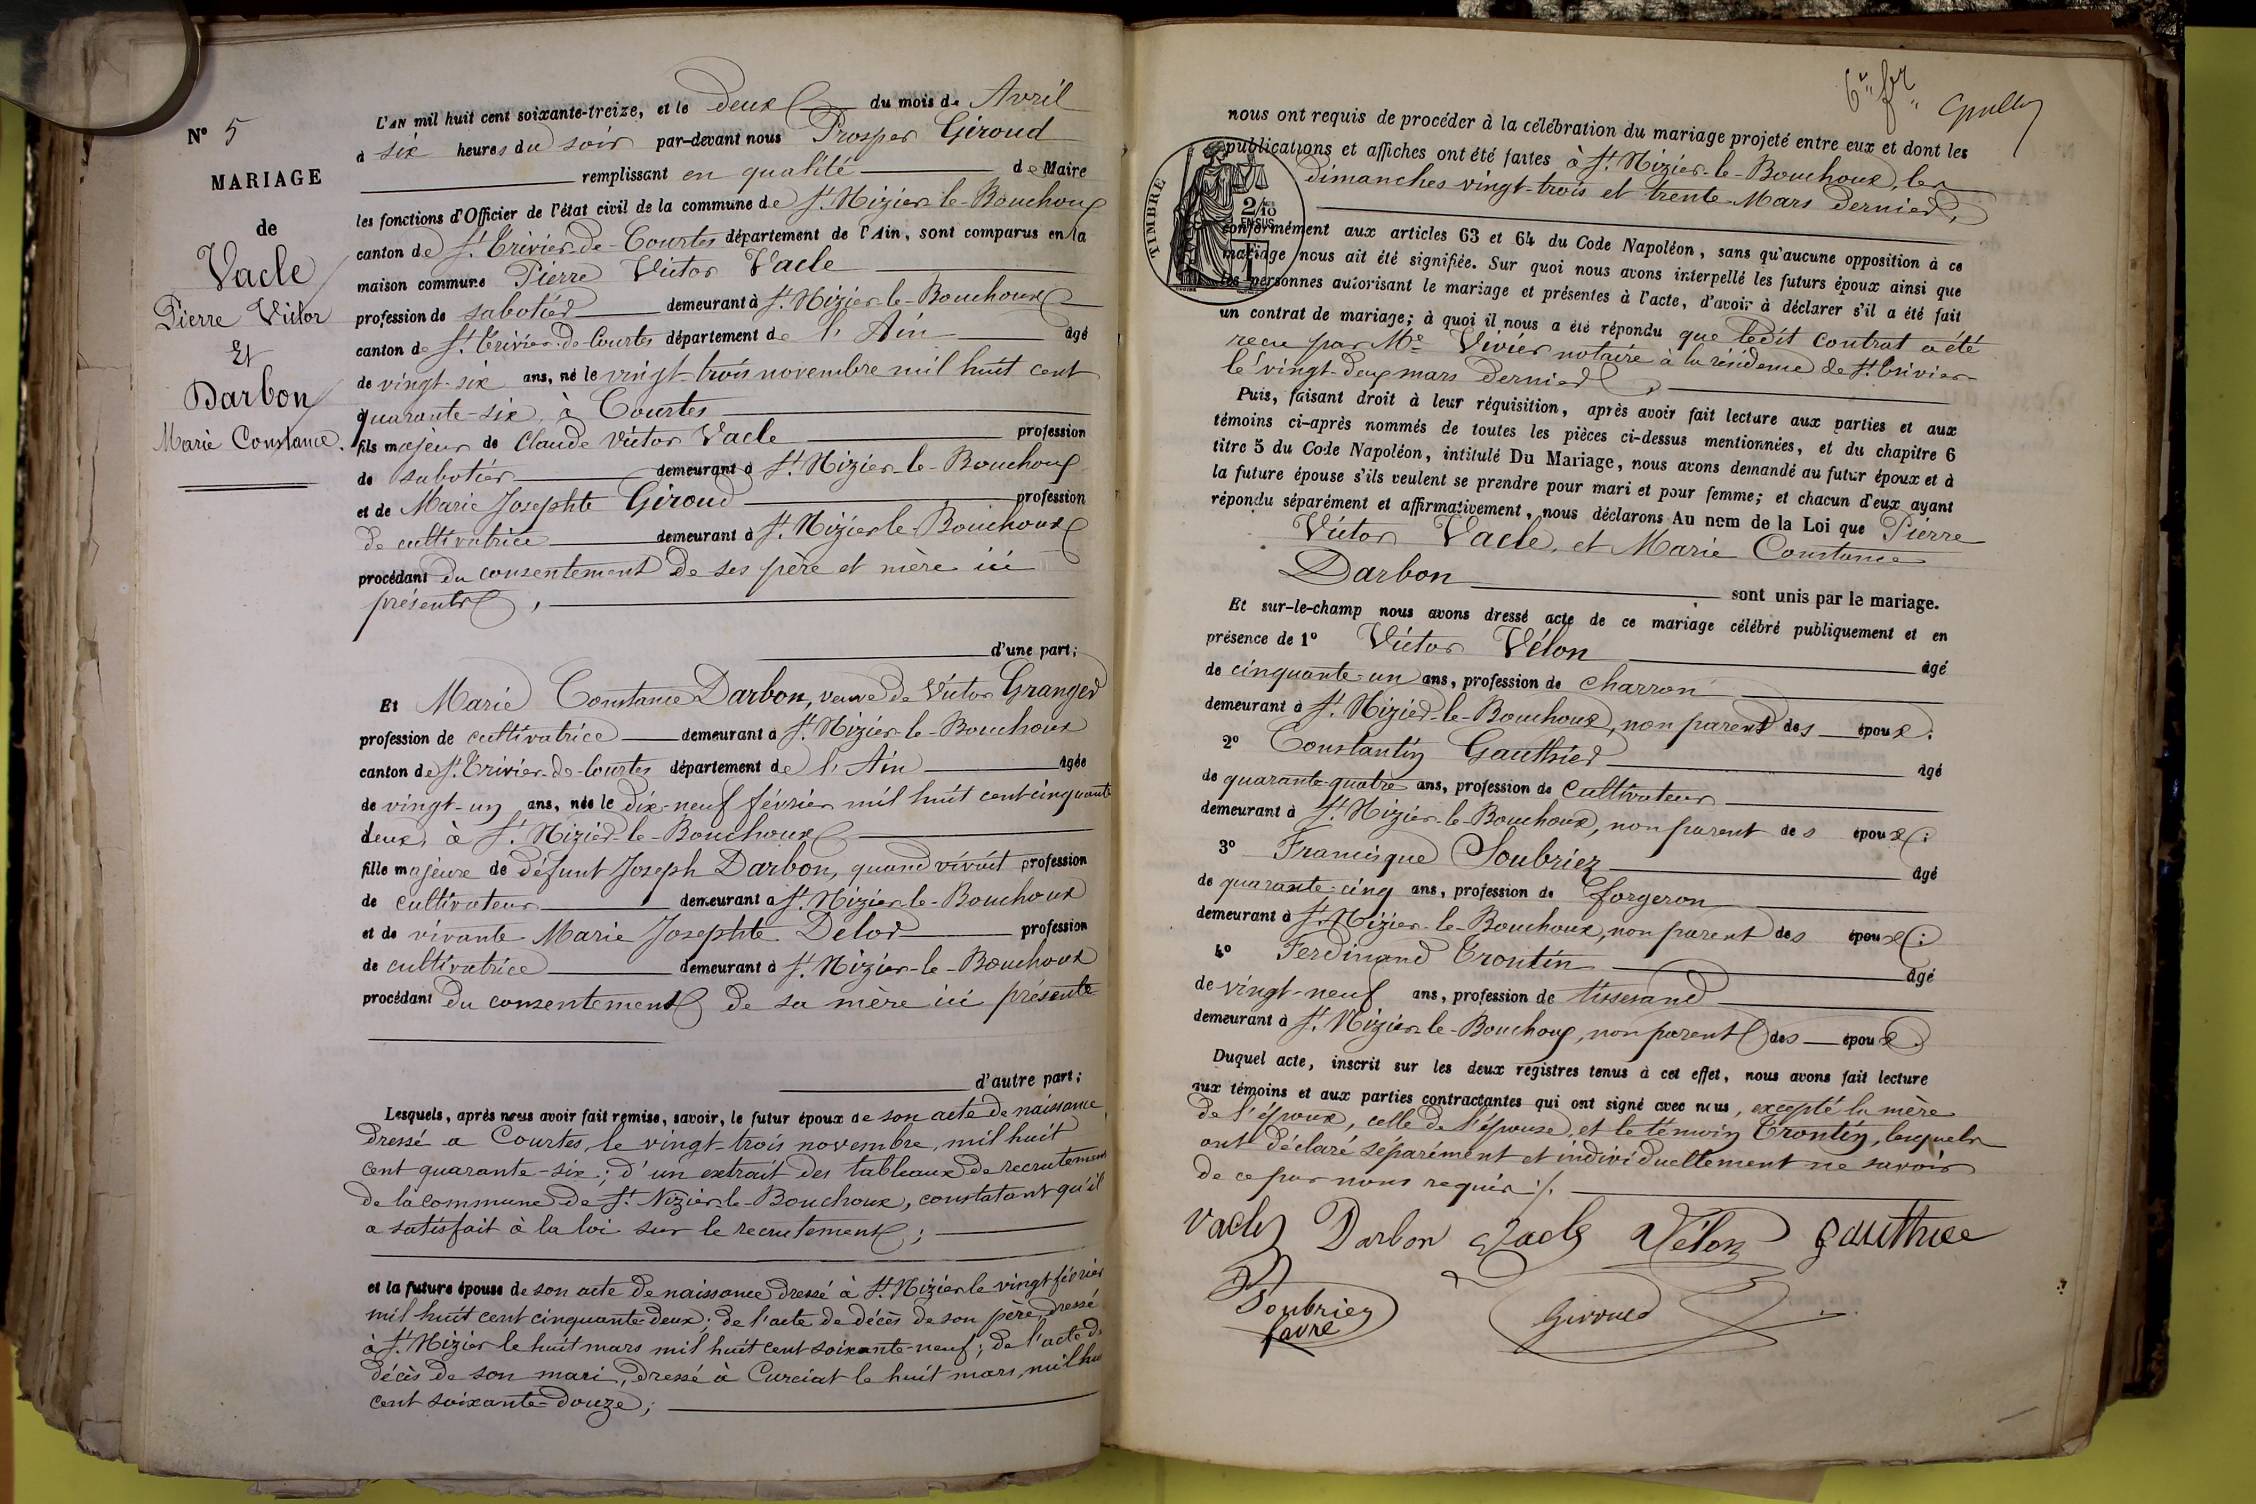 N° 5
MARIAGE
de
Vacle
Pierre Victor
Et
Darbon
Marie Constance.
L'AN mil huit cent soixante-treize, et le deux du mois de Avril
à six heures du soir par-devant nous Prosper Giroud
remplissant en qualité de Maire
les fonctions d'Officier de l'état civil de la commune de St Nizier-le-Bouchoux
canton de St Trivier-de-Courtes département de l'Ain, sont comparus en la
maison commune Pierre Victor Vacle
profession de sabotier demeurant à St Nizier-le-Bouchoux
canton de St Trivier-de-Courtes département de l'Ain âgé
de vingt-six ans, né le vingt-trois novembre mil huit cent
quarante-six, à Courtes
fils majeur de Claude Victor Vacle profession
de sabotier demeurant à St Nizier-le-Bouchoux
et de Marie Josephte Giroud profession
de cultivatrice demeurant à St Nizier le-Bouchoux
procédant du consentement de ses père et mère ici
présents,
d'une part;
Et Marie Constance Darbon, veuve de Victor Granger
profession de cultivatrice demeurant à St Nizier-le-Bouchoux
canton de St Trivier-de-Courtes département de l'Ain âgée
de vingt-un ans, née le dix-neuf février mil huit cent cinquante
deux, à St Nizier-le-Bouchoux
fille majeure de défunt Joseph Darbon, quand vivait profession
de cultivateur demeurant à St Nizier-le-Bouchoux
et de vivante Marie Josephte Delor profession
de cultivatrice demeurant à St Nizier-le-Bouchoux
procédant du consentement de sa mère ici présente
d'autre part;
Lesquels, après nous avoir fait remise, savoir, le futur époux de son acte de naissance
dressé a Courtes, le vingt-trois novembre, mil huit
cent quarante-six; d'un extrait des tableaux de recrutement
de la commune de St Nizier-le-Bouchoux, constatant qu'il
a satisfait à la loi sur le recrutement;
et la future épouse de son acte de naissance dressé à St Nizier le vingt février
mil huit cent cinquante-deux; de l'acte de décès de son père, dressé
à St Nizier le huit mars mil huit cent soixante-neuf; de l'acte de
décès de son mari, dressé à Curciat le huit mars, mil hui
cent soixante-douze;
6" fr "
nous ont requis de procéder à la célébration du mariage projeté entre eux et dont les
publications et affiches ont été faites à St Nizier-le-Bouchoux, les
dimanches vingt-trois et trente Mars dernier,
TIMBRE
2/10
EN SUS
conformément aux articles 63 et 64 du Code Napoléon, sans qu'aucune opposition à ce
mariage nous ait été signifiée. Sur quoi nous avons interpellé les futurs époux ainsi que
les personnes autorisant le mariage et présentes à l'acte, d'avoir à déclarer s'il a été fait
un contrat de mariage; à quoi il nous a été répondu que ledit contrat a été
reçu par Me Vivier notaire à la résidence de St Trivier
le vingt-deux mars dernier,
Puis, faisant droit à leur réquisition, après avoir fait lecture aux parties et aux
témoins ci-après nommés de toutes les pièces ci-dessus mentionnées, et du chapitre 6
titre 5 du Code Napoléon, intitulé Du Mariage, nous avons demandé au futur époux et à
la future épouse s'ils veulent se prendre pour mari et pour femme; et chacun d'eux ayant
répondu séparément et affirmativement, nous déclarons Au nom de la Loi que Pierre
Victor Vacle, et Marie Constance
Darbon sont unis par le mariage.
Et sur-le-champ nous avons dressé acte de ce mariage célébré publiquement et en
présence de 1° Victor Vélon âgé
de cinquante-un ans, profession de charron
demeurant à St Nizier-le-Bouchoux, non parent des époux.
2° Constantin Gauthier âgé
de quarante-quatre ans, profession de cultivateur
demeurant à St Nizier-le-Bouchoux, non parent des époux;
3° Francisque Soubriez âgé
de quarante-cinq ans, profession de forgeron
demeurant à St Nizier-le-Bouchoux, non parent des époux;
4° Ferdinand Trontin âgé
de vingt-neuf ans, profession de tisserand
demeurant à St Nizier-le-Bouchoux, non parent des époux.
Duquel acte, inscrit sur les deux registres tenus à cet effet, nous avons fait lecture
aux témoins et aux parties contractantes qui ont signé avec nous, excepté la mère
de l'époux, celle de l'épouse, et le témoin Trontin, lesquels
ont déclaré séparément et individuellement ne savoir
de ce par nous requis ./.
Vacle Darbon Vacle Vélon gauthier
Soubriez
favre
Giroud